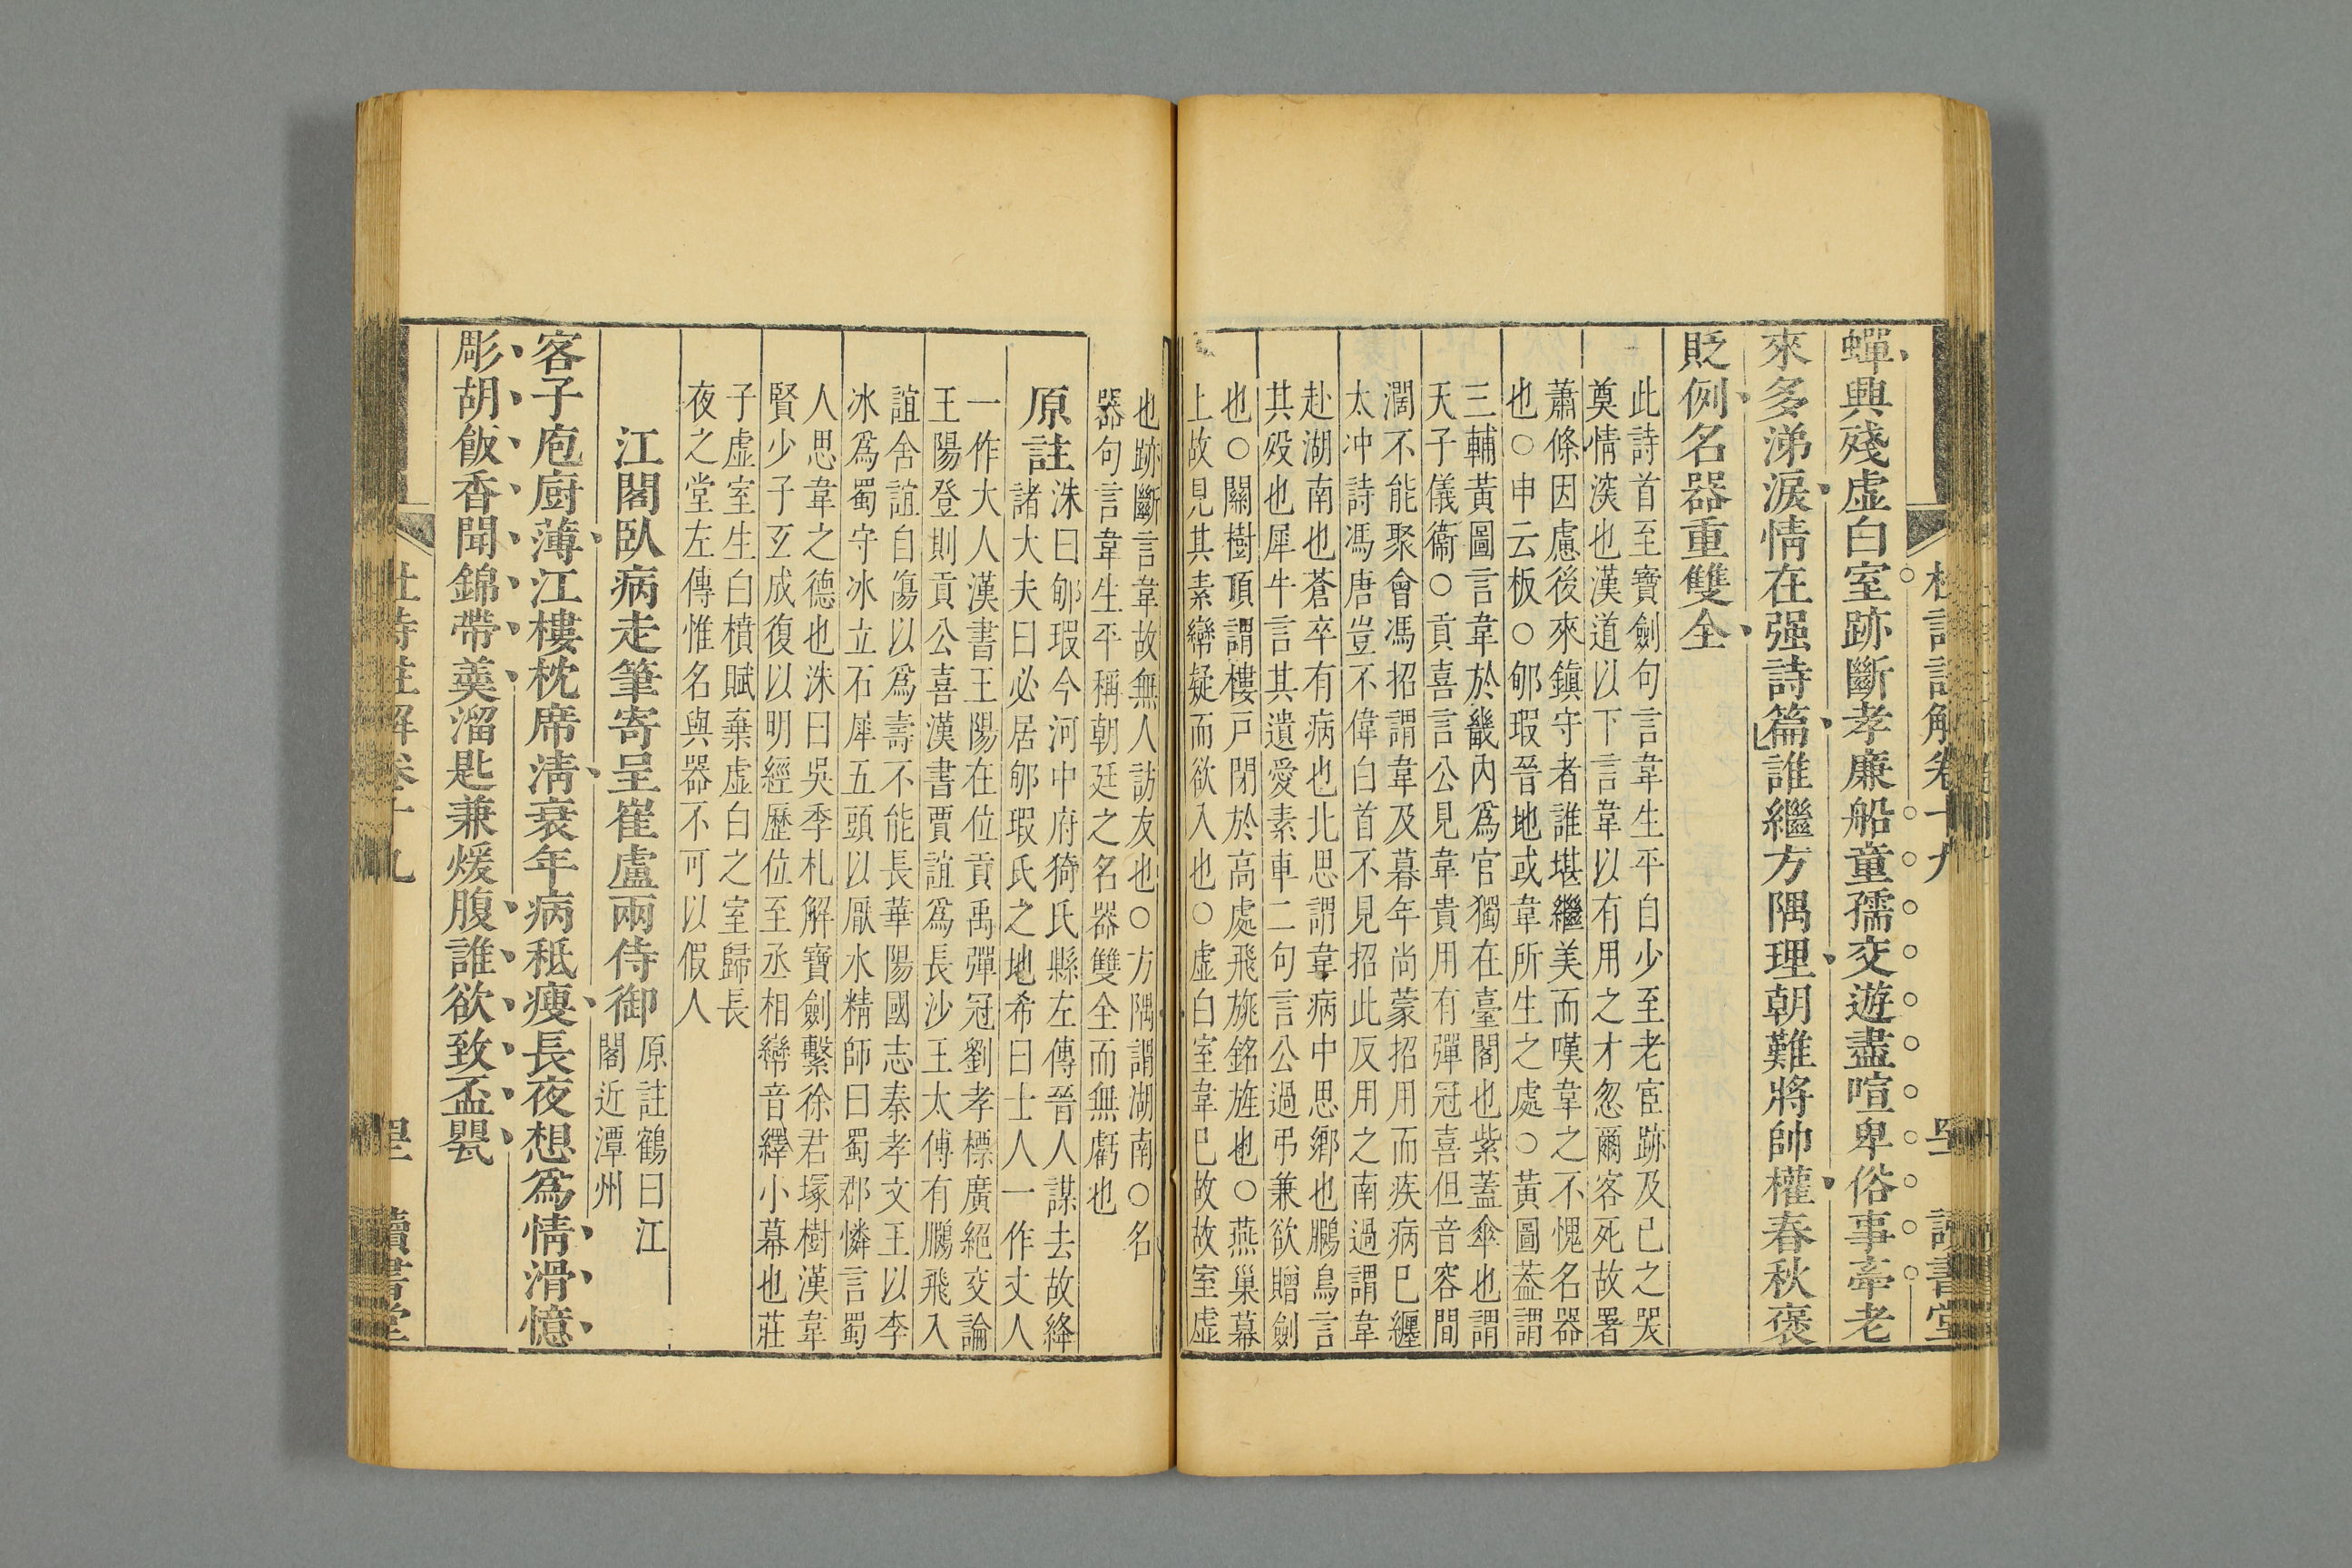 杜詩註解卷十九 讀書堂
蟬興殘虛白室跡斷孝廉船童孺交遊盡喧卑俗事牽老
來多涕淚情在强詩篇誰繼方隅理朝難將帥權春秋褒
貶例名器重雙全
此詩首至寶劍句言韋生平自少至老宦跡及己之哭
奠情深也漢道以下言韋以有用之才忽爾客死故署
蕭條因慮後來鎮守者誰堪繼美而嘆韋之不愧名器
也○申云板○郇瑕晉地或韋所生之處○黃圖葢謂
三輔黃圖言韋於畿內爲官獨在臺閣也紫蓋傘也謂
天子儀衞○貢喜言公見韋貴用有彈冠喜但音容間
濶不能聚會馮招謂韋及暮年尚蒙招用而疾病已纒
太冲詩馮唐豈不偉白首不見招此反用之南過謂韋
赴湖南也蒼卒有病也北思謂韋病中思鄉也鵩鳥言
其殁也犀牛言其遺愛素車二句言公過弔兼欲贈劍
也○關樹頂謂樓戸閉於高處飛旐銘旌也○燕巢幕
上故見其素幰疑而欲入也○虛白室韋已故故室虛
也跡斷言韋故無人訪友也○方隅謂湖南○名
器句言韋生平稱朝廷之名器雙全而無虧也
原註洙曰郇瑕今河中府猗氏縣左傳晉人謀去故絳
諸大夫曰必居郇瑕氏之地希曰士人一作丈人
一作大人漢書王陽在位貢禹彈冠劉孝標廣絕交論
王陽登則貢公喜漢書賈誼爲長沙王太傅有鵩飛入
誼舍誼自傷以爲壽不能長華陽國志秦孝文王以李
冰爲蜀守冰立石犀五頭以厭水精師曰蜀郡憐言蜀
人思韋之德也洙曰吳季札解寶劍繫徐君塚樹漢韋
賢少子玄成復以明經歷位至丞相幰音繹小幕也莊
子虛室生白櫝賦棄虛白之室歸長
夜之堂左傳惟名與器不可以假人
江閣臥病走筆寄呈崔盧兩侍御
原註鶴曰江
閣近潭州
客子庖厨薄江樓枕席淸衰年病秪瘦長夜想爲情滑憶
彫胡飯香聞錦帶羮溜匙兼煖腹誰欲致盃罌
杜詩註解卷十九 讀書堂